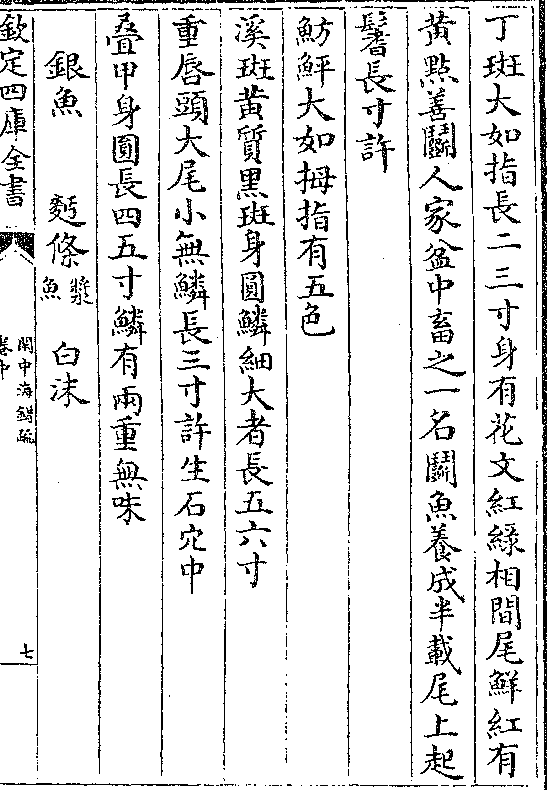 丁斑大如指長二三寸身有花文紅綠相間尾鮮紅有
黃點善鬭人家盆中畜之一名鬭魚養成半載尾上起
鬐長寸許
魴鮃大如拇指有五色
溪斑黃質黑斑身圓鱗細大者長五六寸
重唇頭大尾小無鱗長三寸許生石穴中
叠甲身圓長四五寸鱗有兩重無味
銀魚 麪條漿魚 白沫
欽定四庫全書
閩中海錯疏
卷中
七